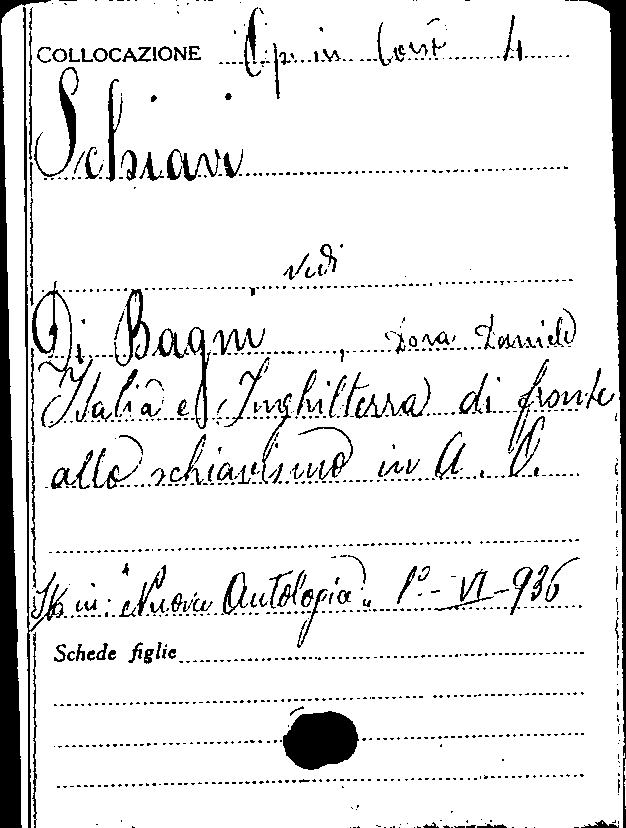 COLLOCAZIONE Op. in Cont 4
Schiavi
vedi
Di Bagni, Dora Daniele
Italia e Inghilterra di fronte
allo schiavismo in A. O.
in: "Nuova Antologia" 1º - VI - 936
Schede figlie